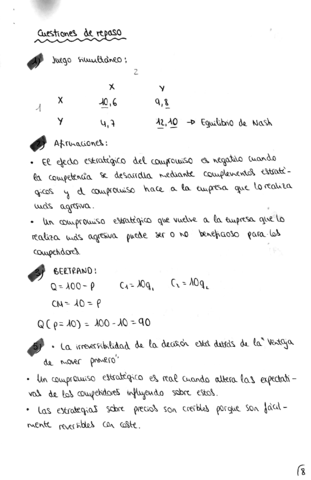 Cuestiones de repaso
Juego simultáneo:
2
X Y
1 X 10,6 9,8
Y 4,7 12,10 → Equilibrio de Nash
Afirmaciones:
• El efecto estratégico del compromiso es negativo cuando
la competencia se desarrolla mediante complementos estraté-
gicos y el compromiso hace a la empresa que lo realiza
más agresiva.
• Un compromiso estratégico que vuelve a la empresa que lo
realiza más agresiva puede ser o no beneficioso para los
competidores.
BERTRAND:
Q = 100 - P C₁ = 10q₁ C₂ = 10q₂
CM = 10 = P
Q(p=10) = 100 - 10 = 90
5) • La irreversibilidad de la decisión está detrás de la "Ventaja
de mover primero"
• Un compromiso estratégico es real cuando altera las expectati-
vas de los competidores influyendo sobre estos.
• Las estrategias sobre precios son creíbles porque son fácil-
mente reversibles con coste.
8